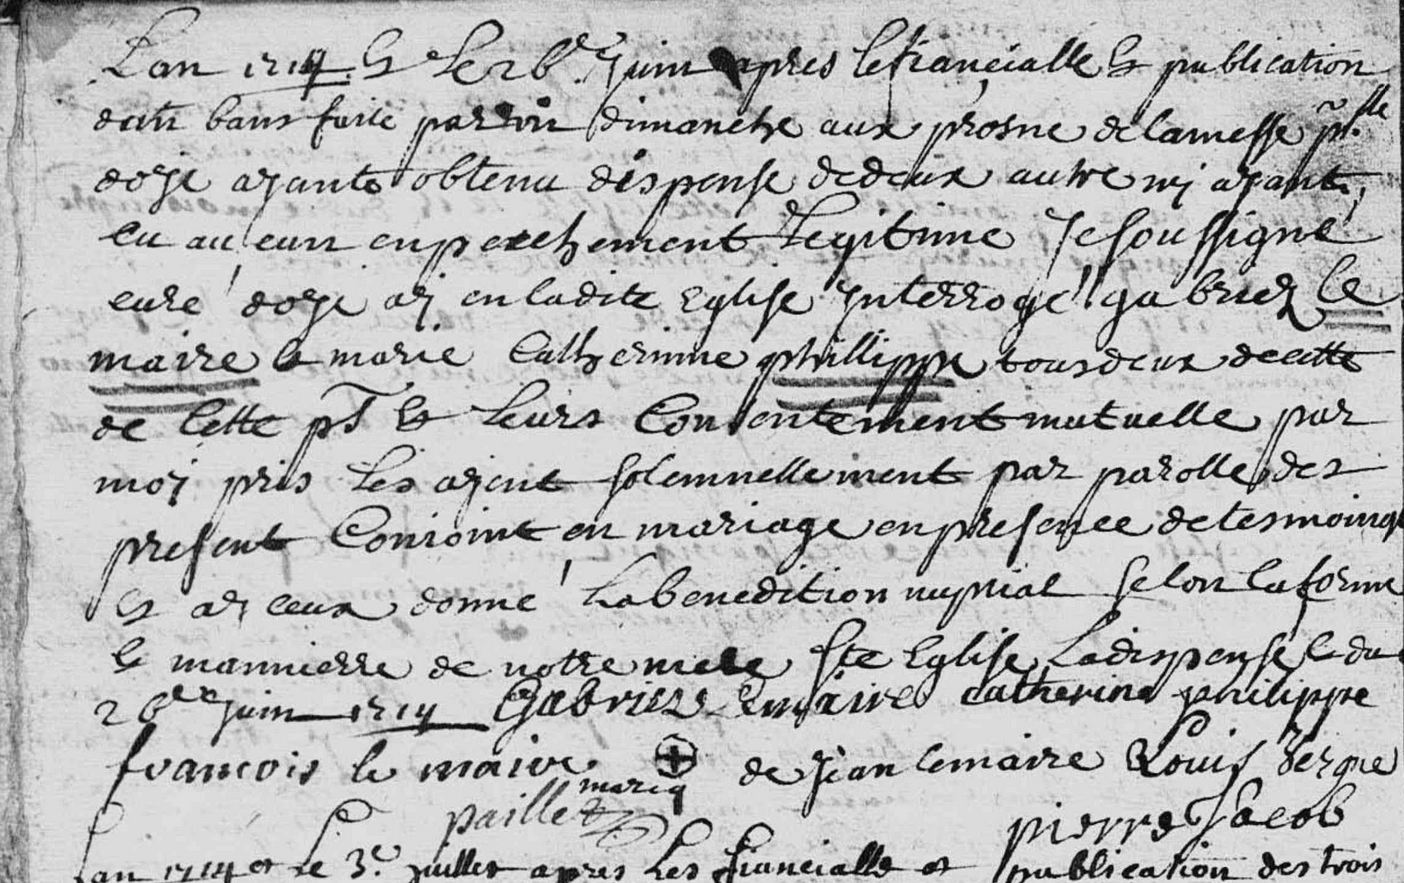 L'an 1714 & le 26e Juin apres le fiancialle & publication
d'un bans faite par un dimanche aux prosne de la messe p.lle
d'oye ayants obtenu dispense de deux autre ny ayant
eu aucun enpeschement legitime Je soussigné
curé d'oye ay en ladite Eglise Interrogé gabriel le
maire & marie Catherinne phillippe tous deux de cette
de cette pt & leurs Consentement mutuelle par
moy pris les ayent solemnellement par parolle des
present Conioint en mariage en presence de tesmoings
& ay ceux donné la benedition nuptial selon la forme
& mannierre de notre mere Ste Eglise Ladispense & du
26e Juin 1714 Gabriel Lemaire catherine philippe
francois le maire marq de Jean lemaire Louis
paillet pierre Jacob
Lan 1714 et Le 3e Juillet apres Les fiancialle et publication des trois